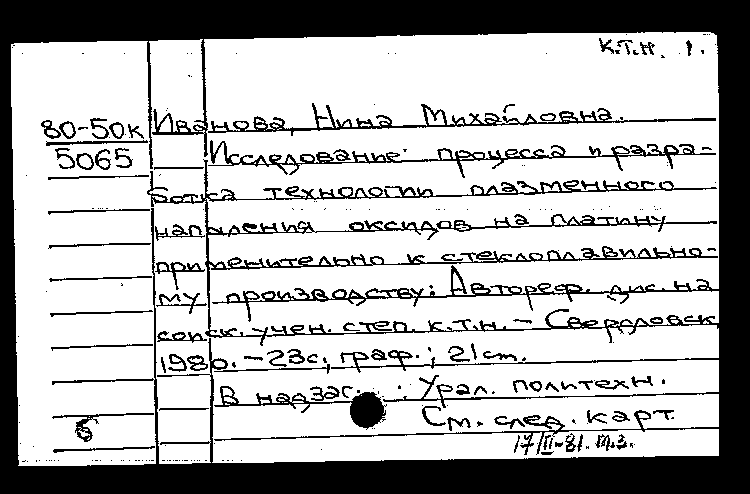 К.Т.Н. 1.
80-50к Иванова, Нина Михайловна.
5065 Исследование процесса и разра-
ботка технологии плазменного
напыления оксидов на платину
применительно к стеклоплавильно-
му производству: Автореф. дис. на
соиск. учен. степ. к.т.н. - Свердловск,
1980. - 23с, граф.; 21 см.
В надзаг.: Урал. политехн.
См. след. карт.
б
17/II-81. м.з.